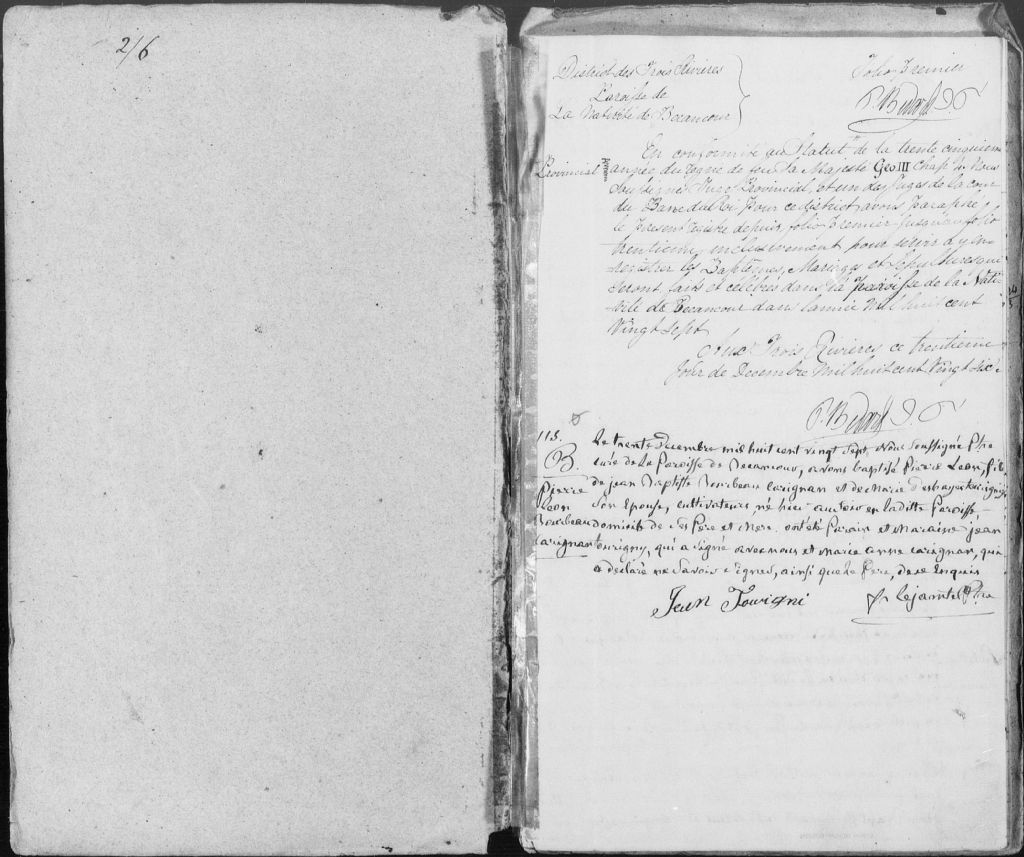 2/6
District des Trois Rivieres
Paroisse de
La Nativité de Becancour
Folio Premier
P. Bedard J. P.
En conformité au Statut de la trente cinquieme
Provincial année du regne de feu Sa Majesté Geo. III Chap. 4. Nous
Soussigné Juge Provincial, et un des Juges de la cour
du Banc du Roi Pour ce district avons Paraphé
le Present régistre depuis folio Premier jusqu'au folio
trentieme, inclusivement pour servir d'y en-
registrer les Baptêmes, Mariages et Sepultures qui
seront faits et célébrés dans la Paroisse de la Nati-
vité de Becancour dans l'année Mil huit cent
Vingt Sept
Aux Trois Rivieres ce trentieme
Jour de Decembre Mil huit cent Vingt Six.
P. Bedard J. P.
113.
B.
Pierre
Leon
Bourbeau
Carignan
Le trente Decembre mil huit cent vingt sept, Nous Soussigné Ptre
curé de la Paroisse de Becancour, avons baptisé Pierre Leon, fils
de jean Baptiste Bourbeau Carignan et de Marie
Son Epouse, cultivateurs, né hier au Soir en la ditte Paroisse
domicile de Ses Père et Mere. ont été Parain et Maraine jean
tourigny, qui a Signé avec nous et Marie anne Carignan, qui
a déclaré ne Savoir Signer, ainsi que le Pere, de ce Enquis
Jean Tourigni
Lejamtel Ptre